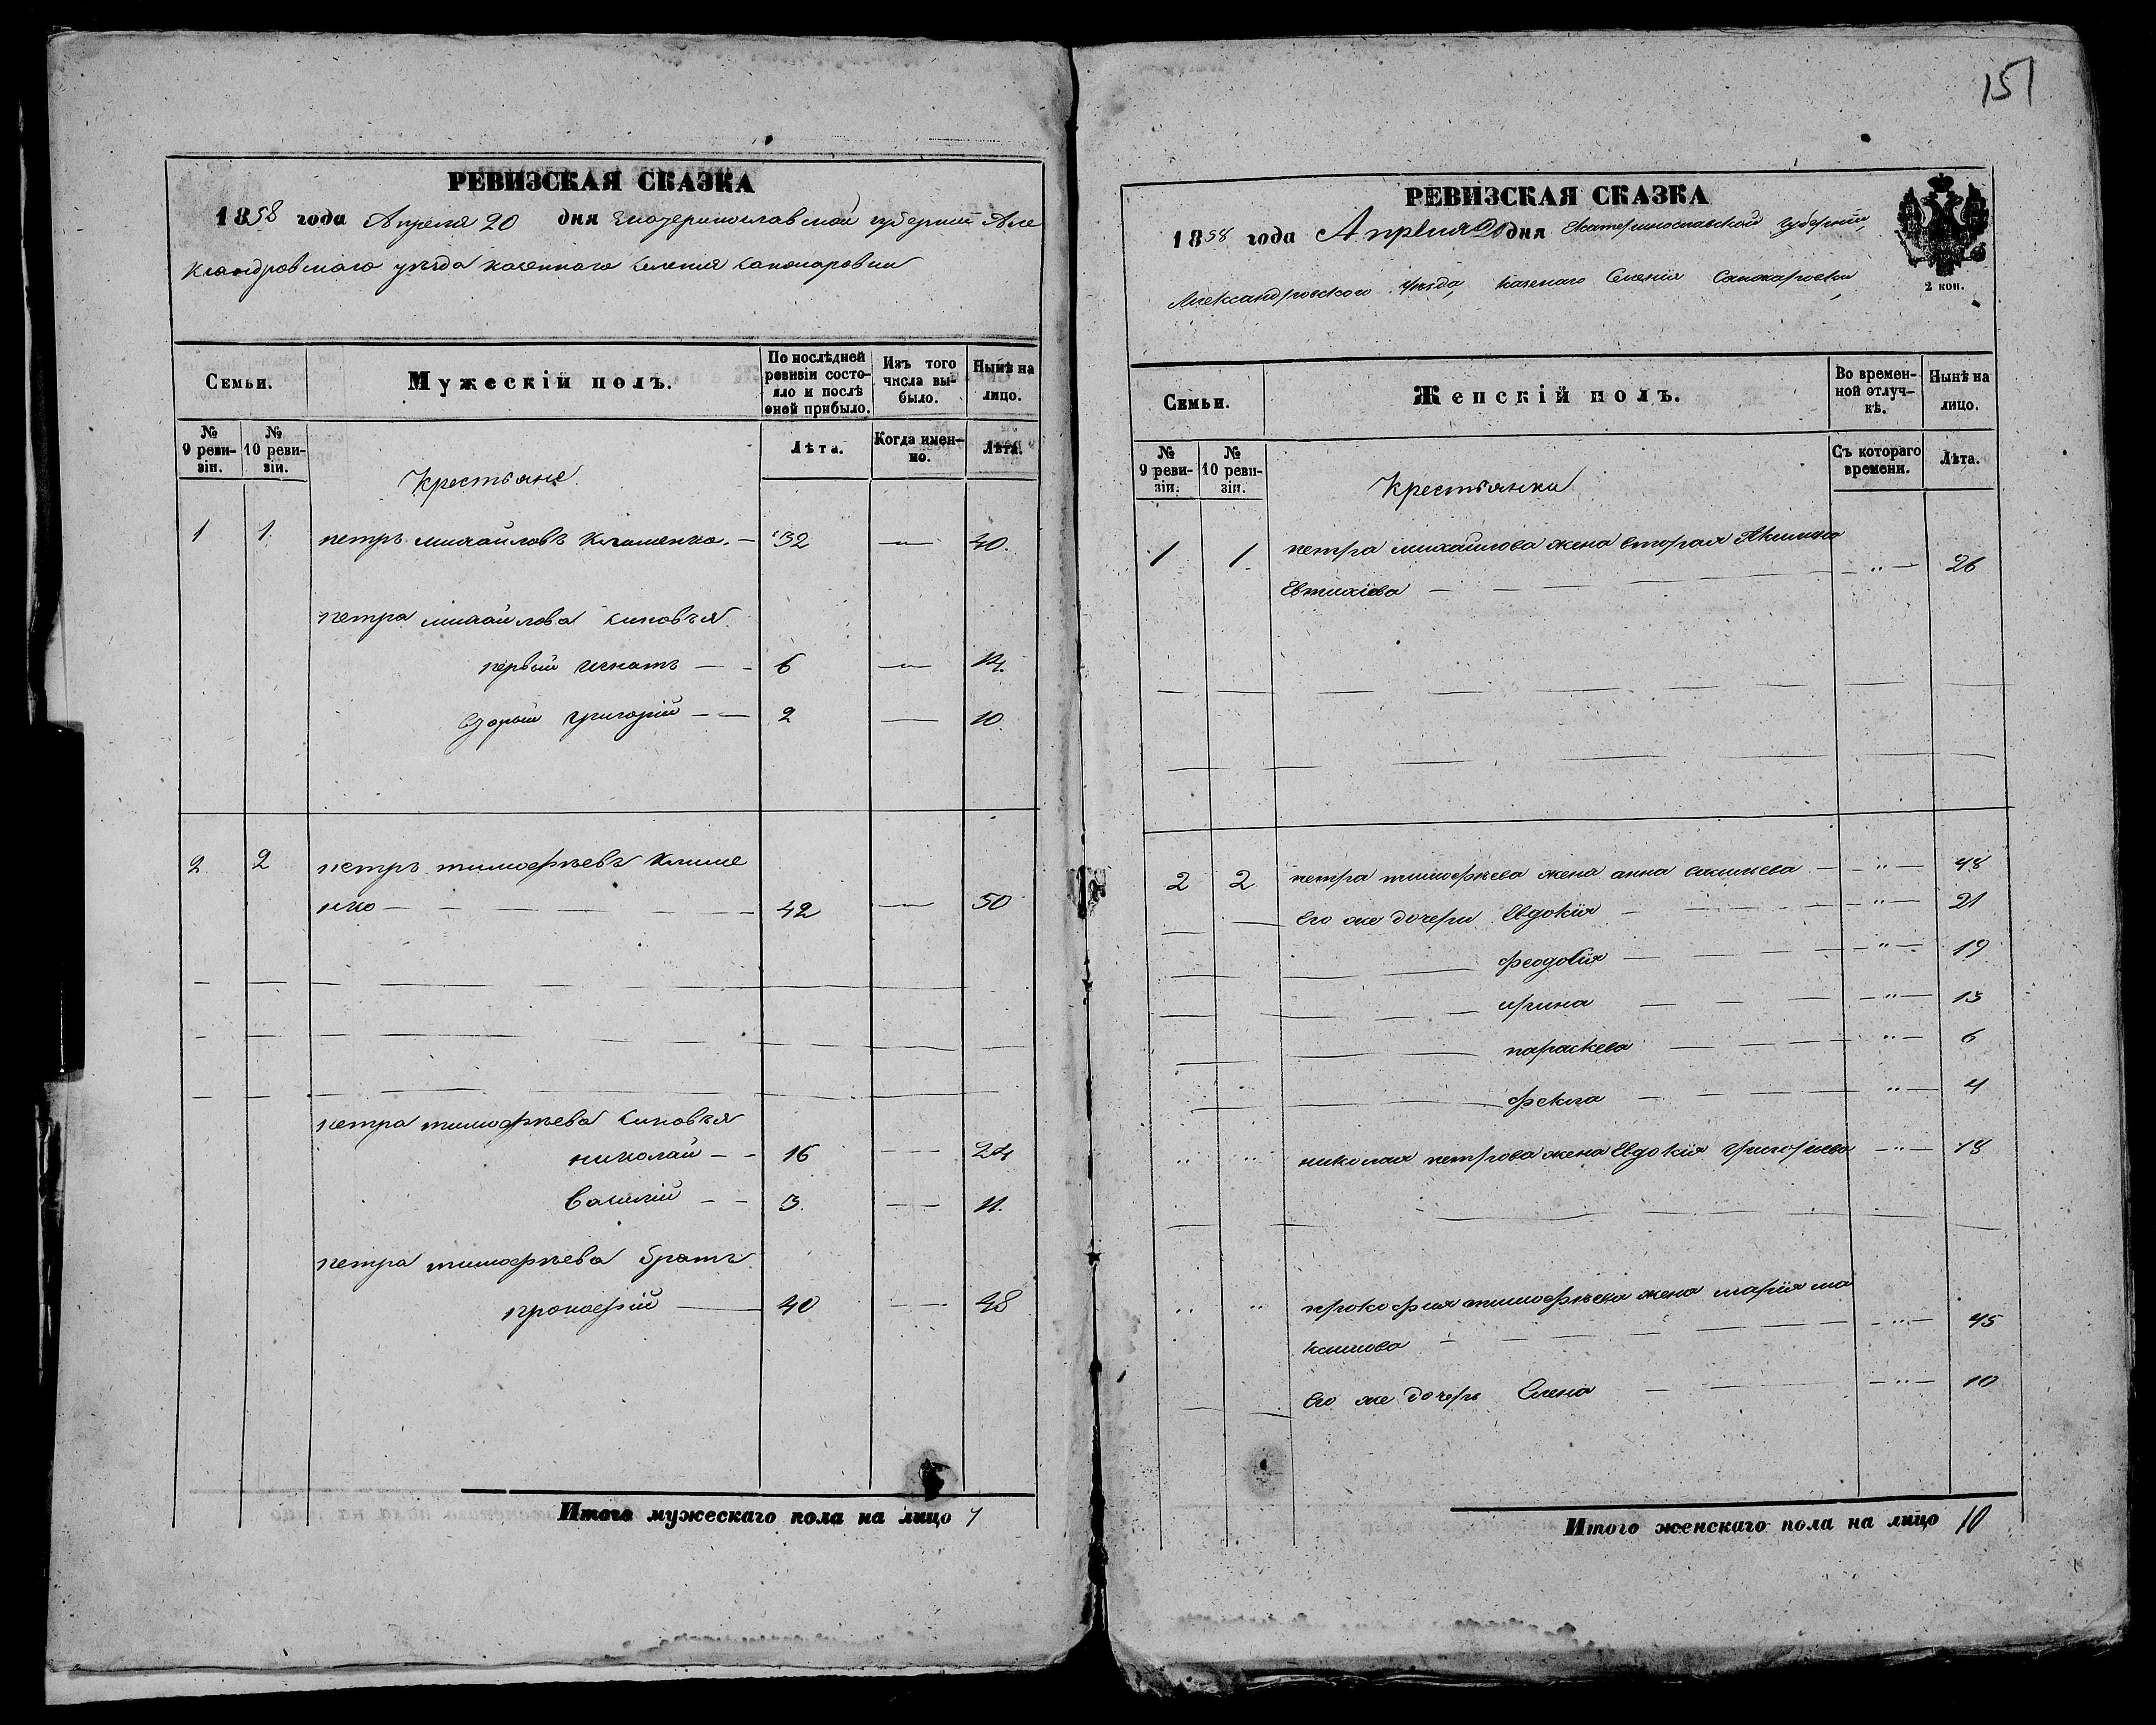 151
РЕВИЗСКАЯ СКАЗКА
1858 года Апреля 20 дня Екатеринославской губернии Але
ксандровского уезда казенного селения
Семьи.
Мужескій полъ.
По послѣдней ревизіи состояло и послѣ оной прибыло.
Изъ того числа выбыло.
Нынѣ на лицо.
№ 9 ревизіи.
№ 10 ревизіи.
Крестьяне
Лѣта.
Когда именно.
Лѣта.
1 1. петръ михайловъ Клименко. — 32 — 40.
петра михайлова сыновья
первый игнатъ — — 6 — 14.
Вторый григорій — — 2 — 10.
2 2 петръ тимофѣевъ Климе
нко — — — — — 42 — 50
петра тимофѣева сыновья
николай — — 16 — — 24
Василій — — 3. — — 11.
петра тимофѣева братъ
прокофій — 40 — — 48
Итого мужескаго пола на лицо 7
РЕВИЗСКАЯ СКАЗКА
1858 года Апреля 20 дня Екатеринославской Губерніи,
Александровского уѣзда, казенаго Селенія
2 коп.
Семьи.
Женскій полъ.
Во временной отлучкѣ.
Нынѣ на лицо.
№ 9 ревизіи.
№ 10 ревизіи.
Крестьянки
Съ котораго времени.
Лѣта.
1 1. петра михайлова жена вторая Акилина
Евтихіева — — — — " — 26
2 2 петра тимофѣева жена анна — " — 48
Его же дочери Евдокія — — — — " — 21
феодосія — — — — " — 19
ирина — — — — " — 13
параскева — — — — " — 6
фекла — — — — " — 4
" " николая петрова жена Евдокія Григорьева — " — 18
" " прокофия тимофѣева жена марія ма
ксимова — — — — — " — 45
Его же дочерь Елена — — — " — 10
Итого женскаго пола на лицо 10